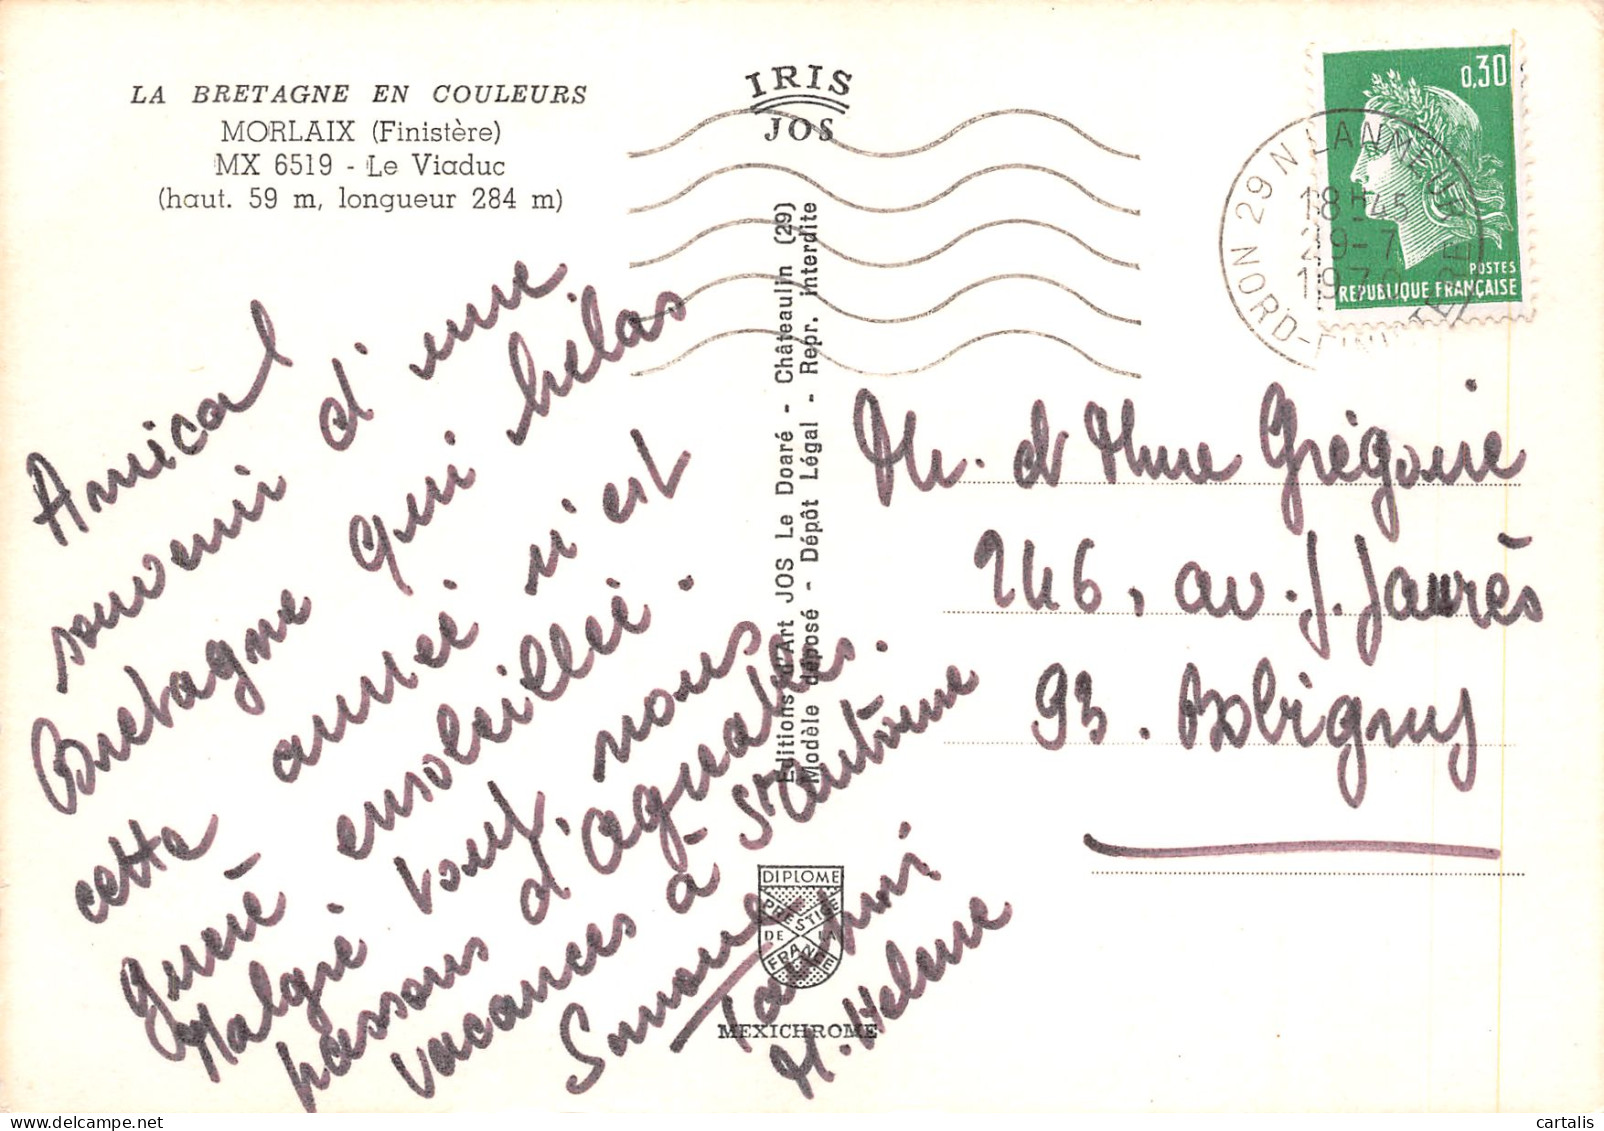 LA BRETAGNE EN COULEURS
MORLAIX (Finistère)
MX 6519 - Le Viaduc
(haut. 59 m, longueur 284 m)
IRIS
JOS
0,30
POSTES
REPUBLIQUE FRANÇAISE
29 N LANMEUR
18H45
29-7
1970
NORD-FINISTERE
Amical
souvenir d'une
Bretagne qui hélas
cette année n'est
guère ensoleillée.
Malgré tout, nous
passons d'agréables
vacances à St Antoine
Simone
M. Helene
Editions d'Art JOS Le Doaré - Châteaulin (29)
Modèle déposé - Dépôt Légal - Repr. interdite
M. et Mme Grégoire
246, av. J. Jaurès
93. Bobigny
DIPLOME
PRESTIGE
DE LA
FRANCE
MEXICHROME
cartalis